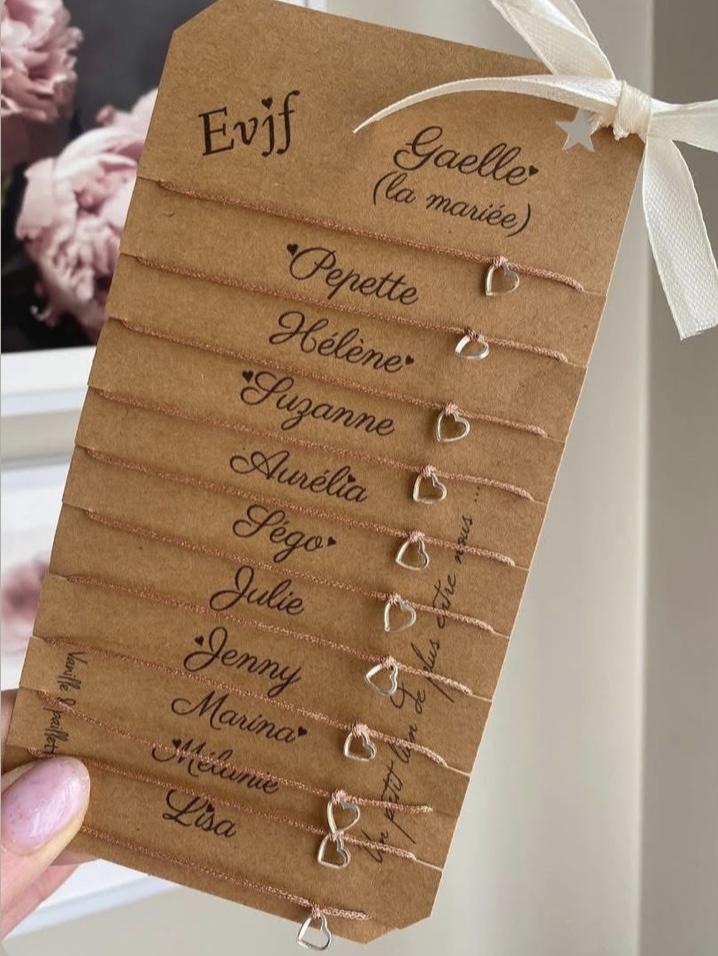 Evjf
Gaelle
(la mariée)
Pepette
Hélène
Suzanne
Aurélia
Ségo
Julie
Jenny
Marina
Mélanie
Lisa
Un petit lien de plus entre nous ...
Vanille &